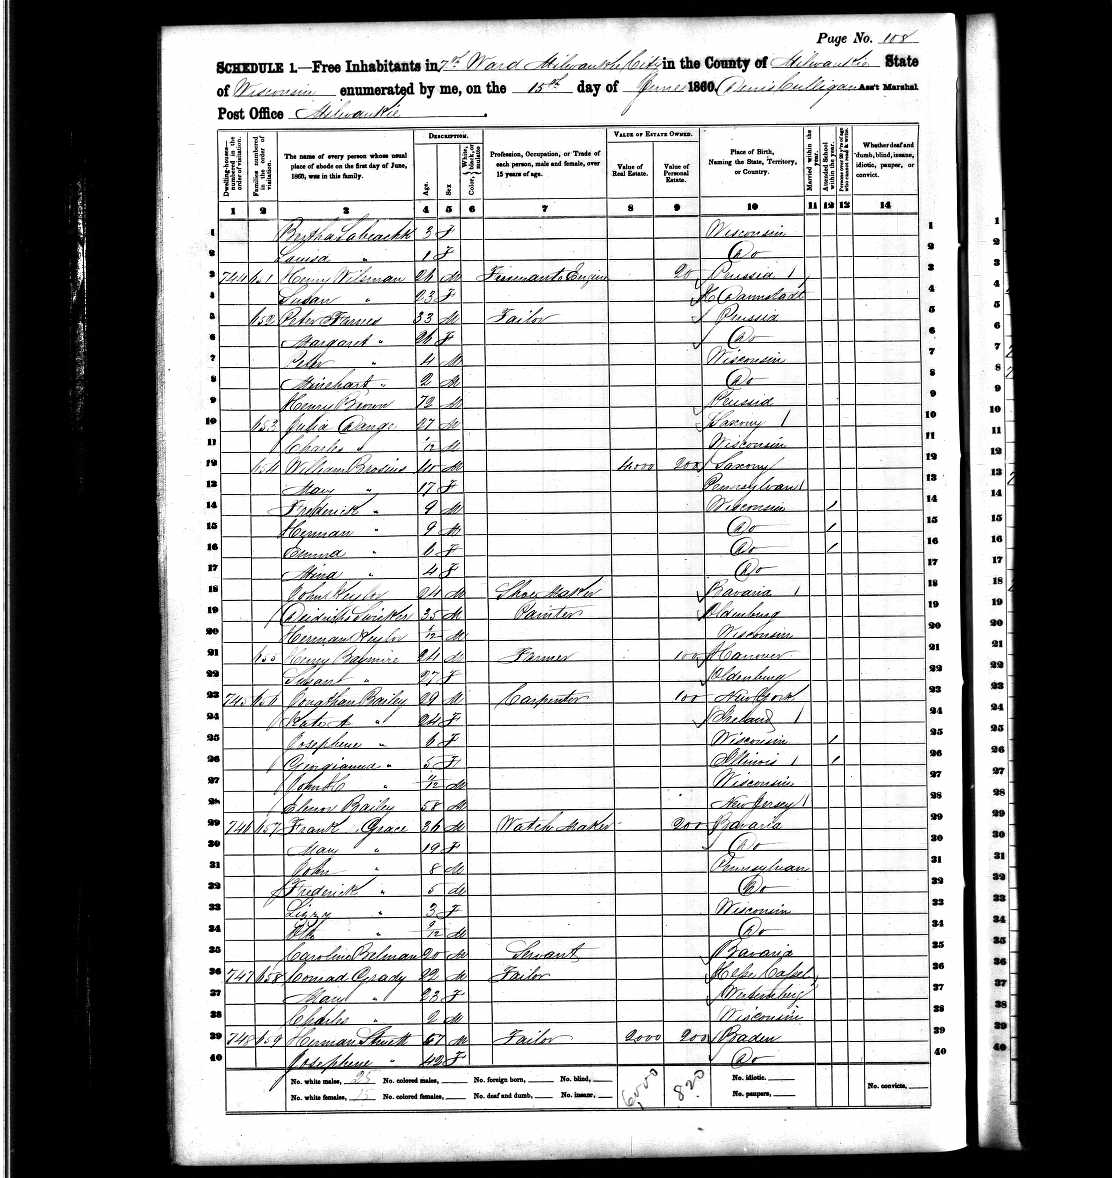 Page No. 108
SCHEDULE 1.—Free Inhabitants in 7th Ward Milwaukie City in the County of Milwaukie State
of Wisconsin enumerated by me, on the 15th day of June 1860. Denis Culligan Ass't Marshal
Post Office Milwaukie.
Dwelling-houses—numbered in the order of visitation.
Families numbered in the order of visitation.
The name of every person whose usual place of abode on the first day of June, 1860, was in this family.
DESCRIPTION.
Age.
Sex
Color, White, black, or mulatto
Profession, Occupation, or Trade of each person, male and female, over 15 years of age.
VALUE OF ESTATE OWNED.
Value of Real Estate.
Value of Personal Estate.
Place of Birth, Naming the State, Territory, or Country.
Married within the year.
Attended School within the year.
Persons over 20 y'rs of age who cannot read & write.
Whether deaf and dumb, blind, insane, idiotic, pauper, or convict.
1 2 3 4 5 6 7 8 9 10 11 12 13 14
1 Bertha 3 F Wisconsin 1
2 Louisa " 1 F Do 2
3 744 651 Henry Wilsman 26 M Fireman to Engine 20 Prussia / 3
4 Susan " 23 F H Darmstadt 4
5 652 Peter Farnes 33 M Tailor Prussia 5
6 Margaret " 26 F Do 6
7 Peter " 4 M Wisconsin 7
8 Minehart " 2 M Do 8
9 Henry Brown 72 M Prussia 9
10 653 Julia Dange 27 M Saxony / 10
11 Charles " 1/12 M Wisconsin 11
12 654 William Brosius 40 M 4000 200 Saxony 12
13 Mary " 17 F Pennsylvan 13
14 Frederick " 9 M Wisconsin / 14
15 Herman " 9 M Do / 15
16 Emma " 6 F Do / 16
17 Mina " 4 F Do 17
18 John Kesler 24 M Shoe Maker Bavaria / 18
19 35 M Painter Oldenburg 19
20 Herman Kesler /12 M Wisconsin 20
21 655 Henry 24 M Farmer 100 Hanover 21
22 Susan " 27 F Oldenburg 22
23 745 656 Jonathan Bailey 29 M Carpenter 100 New York 23
24 Kate A " 24 F Ireland / 24
25 Josephene " 6 F Wisconsin / 25
26 Georgianna " 5 F Illinois / / 26
27 John H " /12 M Wisconsin 27
28 Elenor Bailey 58 M New Jersey / 28
29 746 657 Frank Grace 36 M Watch Maker 200 Bavaria 29
30 Mary " 19 F Do 30
31 John " 8 M Pennsylvan 31
32 Frederick " 5 M Do 32
33 Lizzy " 3 F Wisconsin 33
34 " 9/12 M Do 34
35 Caroline Belman 20 M Servant Bavaria 35
36 747 658 Conrad Grady 22 M Tailor Hesse Cassel 36
37 Mary " 23 F Wurtemberg 37
38 Charles " 2 M Wisconsin 38
39 748 659 Herman 57 M Tailor 2000 200 Baden 39
40 Josephene " 42 F Do 40
No. white males, 25 No. colored males, No. foreign born, No. blind, 6000 820 No. idiotic, No. convicts,
No. white females, 15 No. colored females, No. deaf and dumb, No. insane, No. paupers,